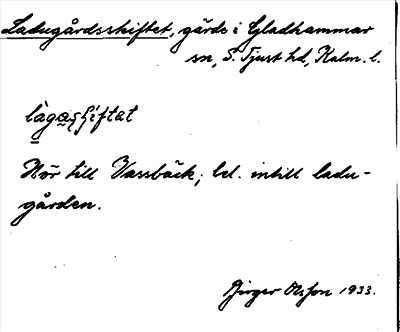 Ladugårdsskiftet, gärde i Gladhammar
sn, S. Tjust hd, Kalm. l.
lagaſʃiftat
Hör till Vassbäck; bel. intill ladu-
gården.
Birger Olsson 1933.